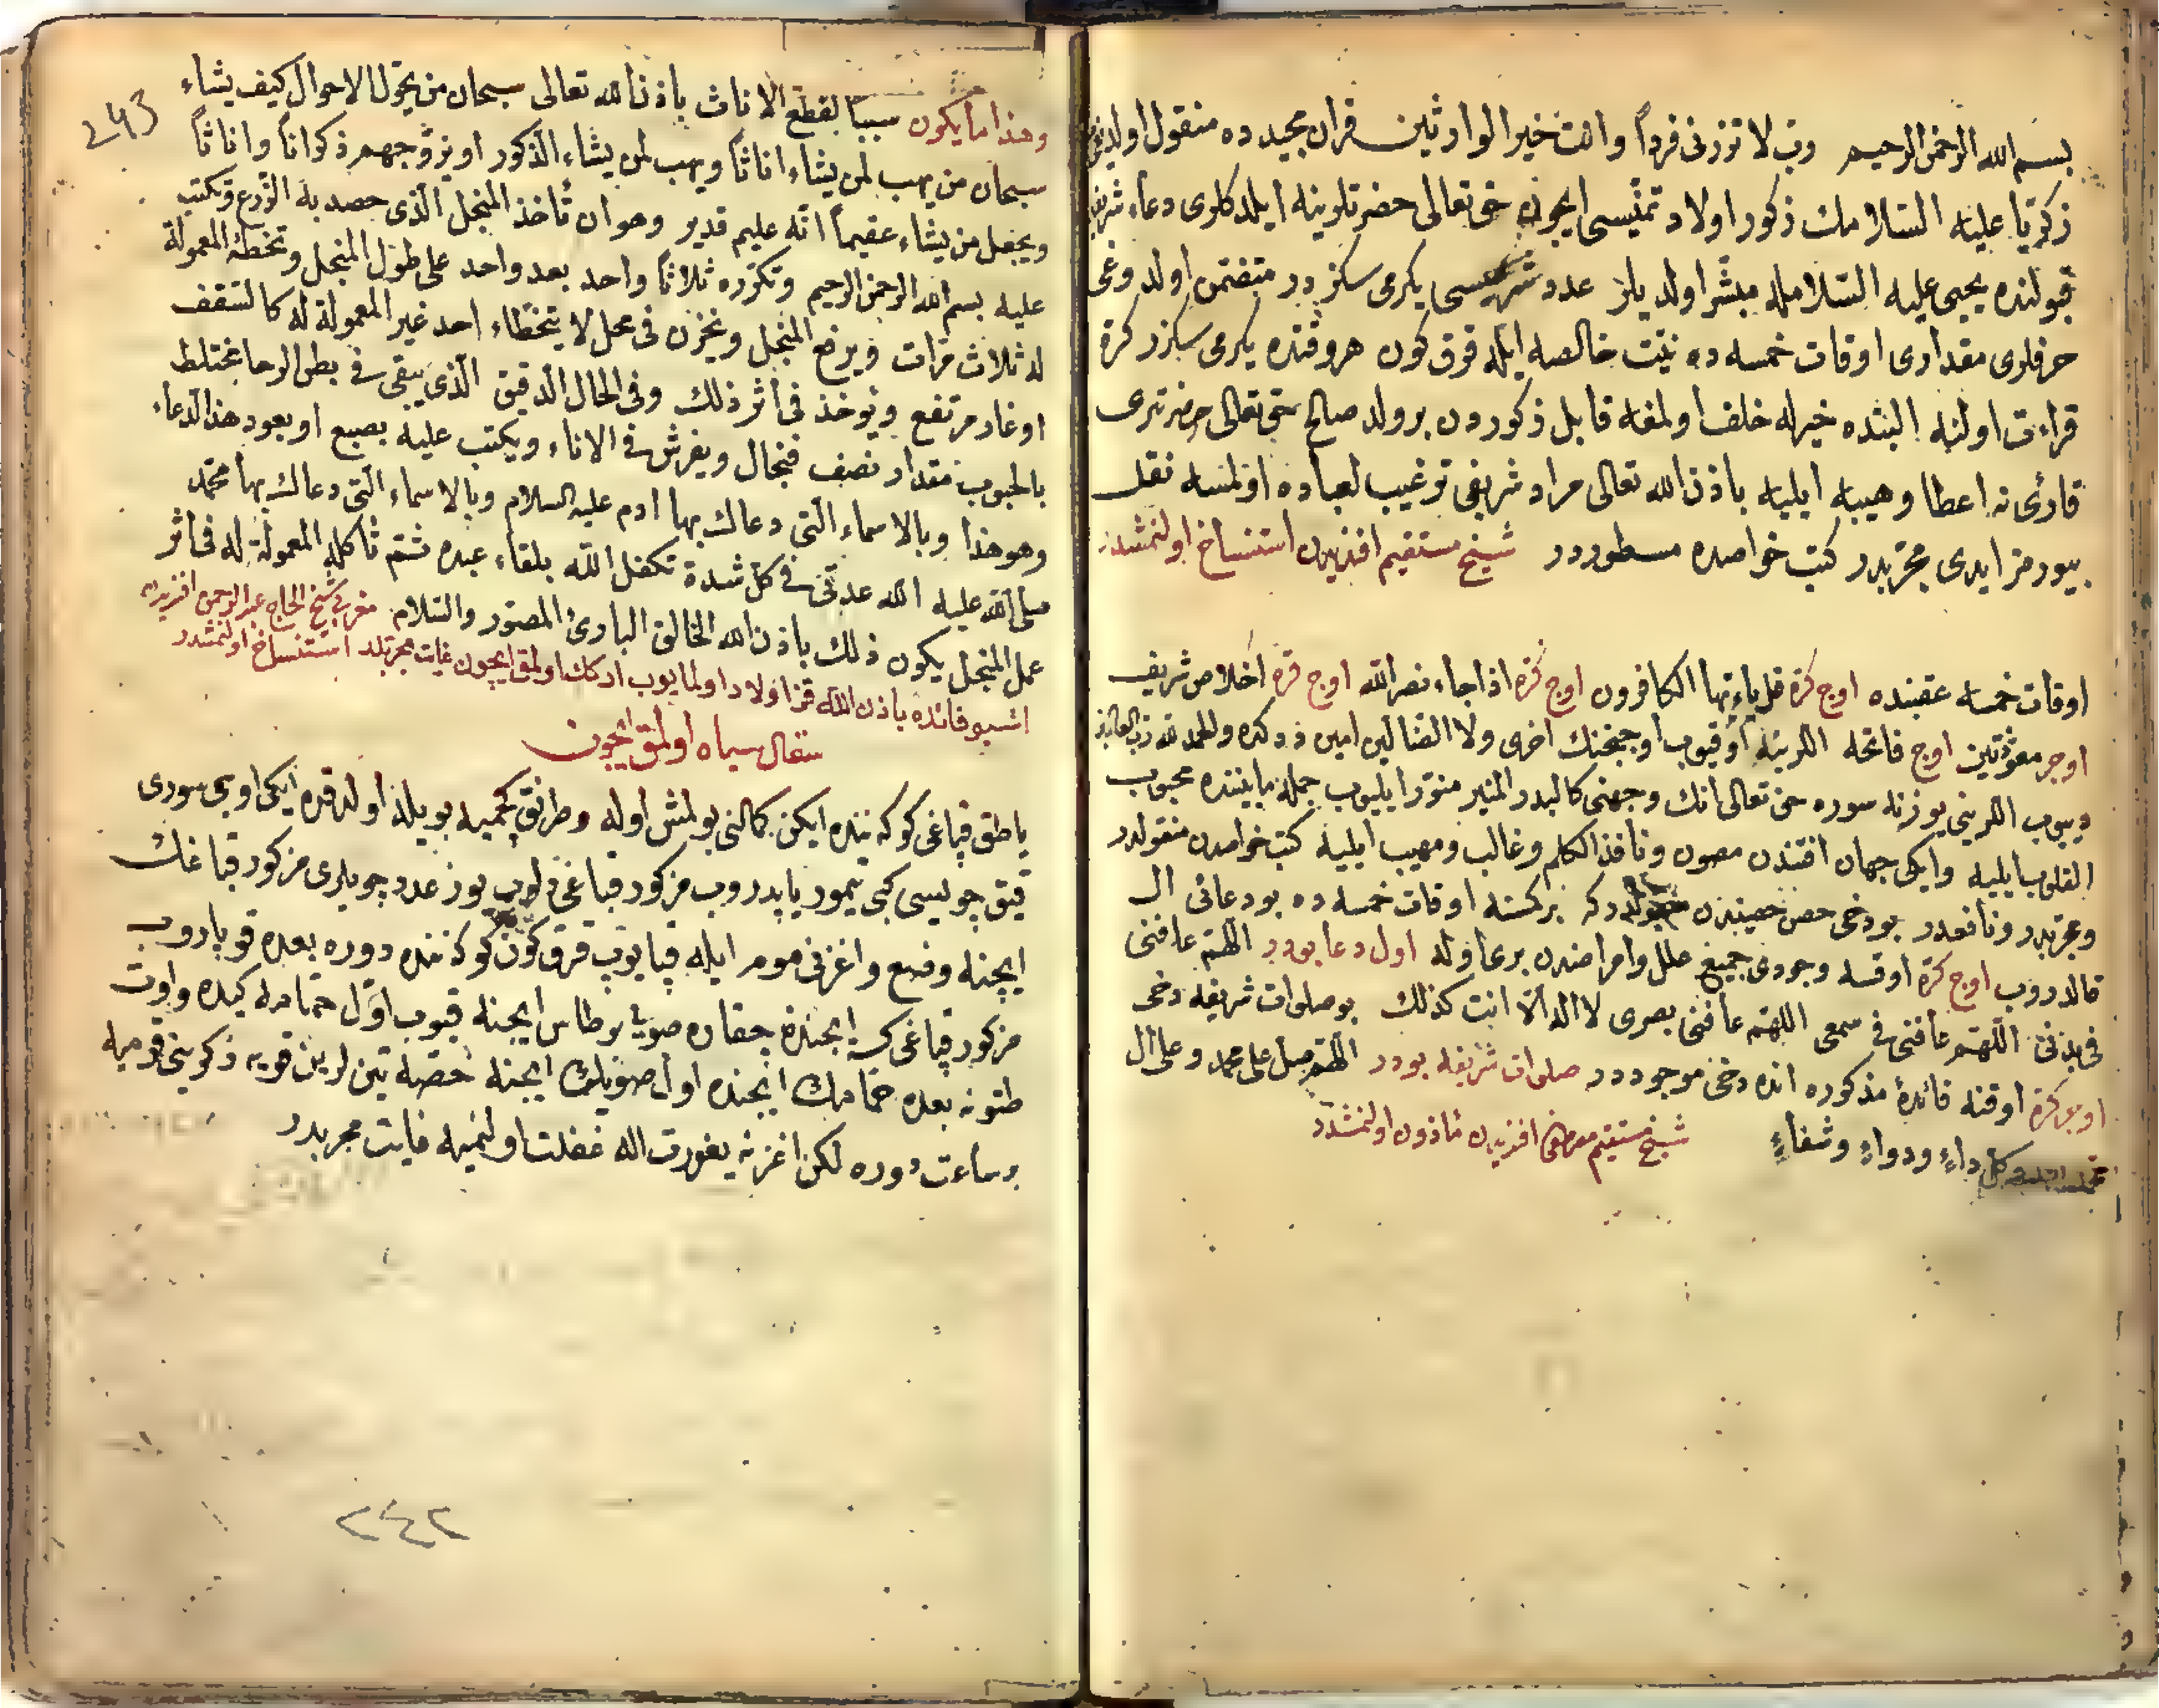 بسم الله الرحمن الرحيم رب لا تذرنى فرداً وانت خير الوارثين قران مجيدده منقول اولديغى
زكريا عليه السلامك ذكور اولاد تمنيسى ايچون حق تعالى حضرتلرينه ايلدكلرى دعاء شريف
قبولنده يحيى عليه السلامله مبشر اولديلر عدد شريفسى يكرمى سكزدر متضمن اولدوغى
حرفلرى مقدارى اوقات خمسه ده نيت خالصه ايله قرق كون هر وقتده يكرمى سكزر كرة
قراءت اولنه البته خير له خلف اولمغه قابل ذكوردن بر ولد صالح حق تعالى حضرتلرى
قارئ نه اعطا وهيبه ايليه باذن الله تعالى مراد شريفى ترغيب لعباده اولمسه نقل
بيورمز ايدى مجربدر كتب خواصده مسطوردر شيخ مستقيم افنديدن استنساخ اولنمشدر
اوقات خمسه عقبنده اوج كرة قل ياءيها الكافرون اوج كرة اذا جاء نصر الله اوج كرة اخلاص شريف
اوجر معوذتين اوج فاتحه اللرينه اوقيوب اوجنجينك اخرى ولا الضالين امين ددكده والحمد لله رب العالمين
ديوب اللرينى يوزنه سوره حق تعالى انك وجهنى كالبدر المنير منور ايليوب جمله مابيننده محبوب
القلوب ايليه وايكى جهان افتندن مصون ونافذ الكلم وغالب ومهيب ايليه كتب خواصدن منقولدر
ومجربدر ونافعدر بودخى حصن حصيندن منقولدر كه بر كمسنه اوقات خمسه ده بو دعائى ال
قالدروب اوج كرة اوقسه وجودى جميع علل وامراضدن برى اوله اول دعا بودر اللهم عافنى
فى بدنى اللهم عافنى فى سمعى اللهم عافنى بصرى لا اله الا انت كذلك بو صلوات شريفه دخى
اوجر كرة اوقنه فائدة مذكوره انده دخى موجوددر صلوات شريفه بودر اللهم صل على محمد وعلى ال
محمد بعدد كل داءٍ ودواءٍ وشفاءٍ شيخ مستقيم مصطفى افنديدن مأذون اولنمشدر
243
وهذا ما يكون سببا لقطع الاناث باذن الله تعالى سبحان من يحول الاحوال كيف يشاء
سبحان من يهب لمن يشاء اناثاً ويهب لمن يشاء الذكور او يزوجهم ذكراناً واناثاً
ويجعل من يشاء عقيماً انه عليم قدير وهو ان تأخذ المنجل الذى حصد به الزرع وتكتب
عليه بسم الله الرحمن الرحيم وتكرره ثلاثاً واحد بعد واحد على طول المنجل وتخطه المعمولة
له ثلاث مرات ويرفع المنجل ويخزن فى محل لا يتخطاء احد غير المعمولة له كالسقف
او غار مرتفع ويوخذ فى أثر ذلك وفى الحال الدقيق الذى يبقى فى بطن الرحا مختلط
بالحبوب مقدار نصف فنجال ويفرش فى الاناء ويكتب عليه بصبع او بعود هذا الدعاء
وهو هذا وبالاسماء التى دعاك بها ادم عليه السلام وبالاسماء التى دعاك بها محمد
صلى الله عليه الله عدتى فى كل شدة تكفل الله بلقاء عبده ثم تأكله المعمولة له فى أثر
عمل المنجل يكون ذلك باذن الله الخالق البارئ المصور والسلام مغربى شيخ الحاج عبد الرحمن افنديدن
اشبو فائده باذن الله قز اولاد اولمايوب اركك اولمق ايچون غايت مجربدر استنساخ اولنمشدر
سقال سياه اولمق ايچون
ياطق قپاغى كوكنده ايكن كمالنى بولمش اوله وطرنق كچميه بويله اولدقده ايكى اوجى سورى
قيق چويسى كبى تيمور ياپدروب مزكور قباغى الوب يوز عدد چويلرى مزكور قباغك
ايچنه وضع واغزنى موم ايله قپايوب قرق كون كوكنده دوره بعده قوپاروب
مزكور قپاغى كسه ايچندن چقان صويى بر طاس ايچنه قيوب اول حمامه كيده واوت
طتونه بعده حمامك ايچنده اول صويك ايچنه خصه تين لرين قويه ذكرينى قوميه
بر ساعت دوره لكن اغزنه يغورت اله غفلت اولنميه غايت مجربدر
٢٤٢